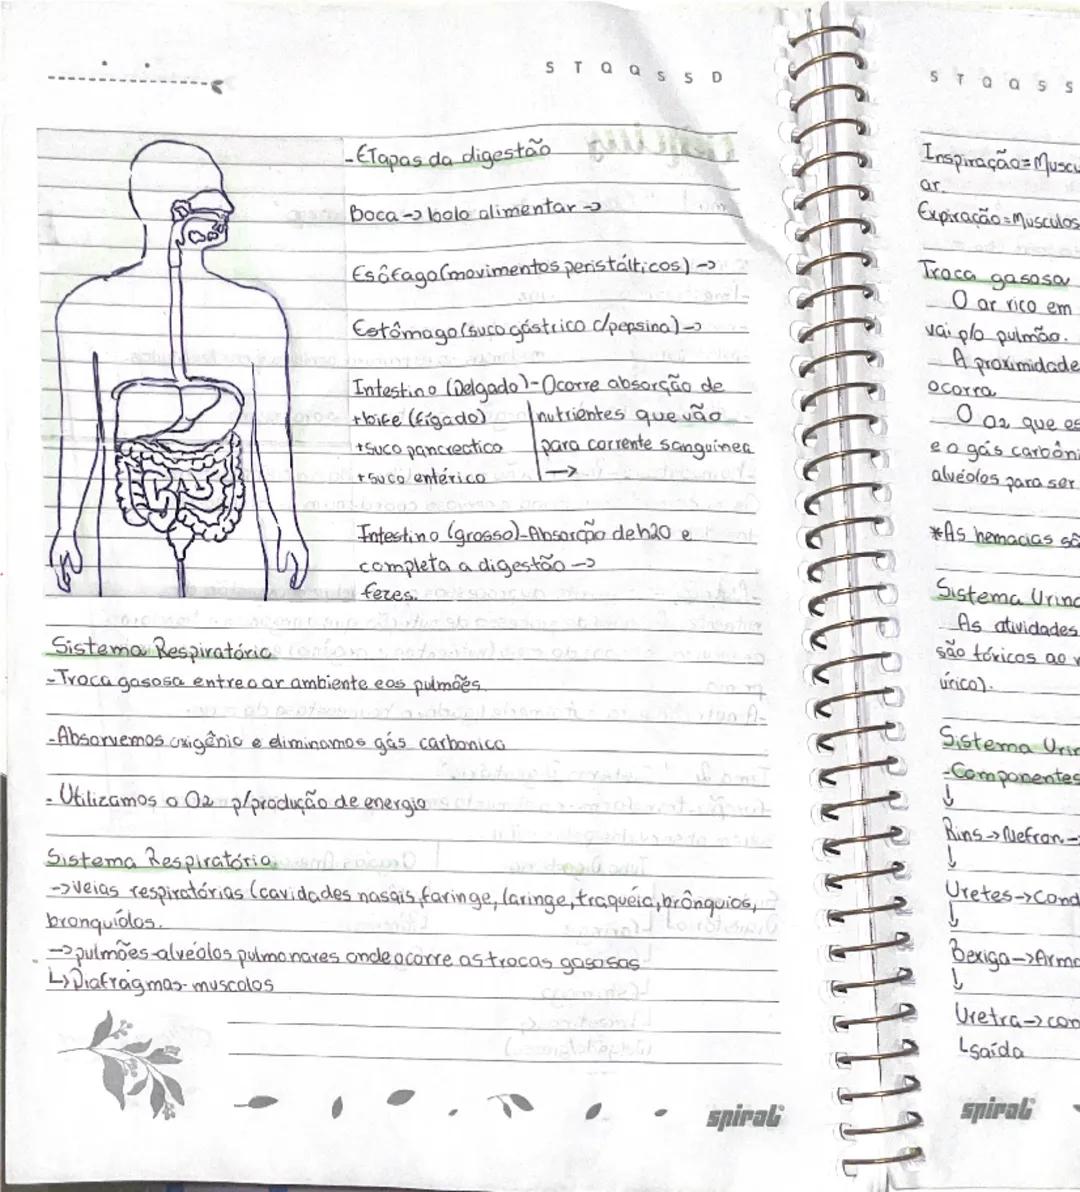 S T Q Q S S D
-Etapas da digestão
Boca -> bolo alimentar ->
Esôfago (movimentos peristálticos) ->
Estômago (suco gástrico c/pepsina) ->
Intestino (Delgado)-Ocorre absorção de
+bile (fígado) nutrientes que vão
+suco pancreatico para corrente sanguinea
+suco entérico ->
Intestino (grosso)-Absorção de h20 e
completa a digestão ->
fezes.
Sistema Respiratório
-Troca gasosa entre o ar ambiente e os pulmões.
-Absorvemos oxigênio e eliminamos gás carbonico
- Utilizamos o O2 p/produção de energia
Sistema Respiratório
->veias respiratórias (cavidades nasais, faringe, laringe, traqueia, brônquios,
bronquíolos.
->pulmões-alvéolos pulmonares onde ocorre as trocas gasosas
↳Diafrágmas- muscolos
spiral
S T Q Q S S
Inspiração=Muscu
ar.
Expiração=Músculos
Troca gasosa
O ar rico em
vai p/o pulmão.
A proximidade
ocorra
O O2 que es
e o gás carbôni
alvéolos para ser
*As hemacias sã
Sistema Urina
As atividades
são tóxicos ao
úrico).
Sistema Urin
-Componentes
↓
Rins->Nefron.-
↓
Uretes->Cond
↓
Bexiga->Arma
↓
Uretra->con
↳saída
spiral